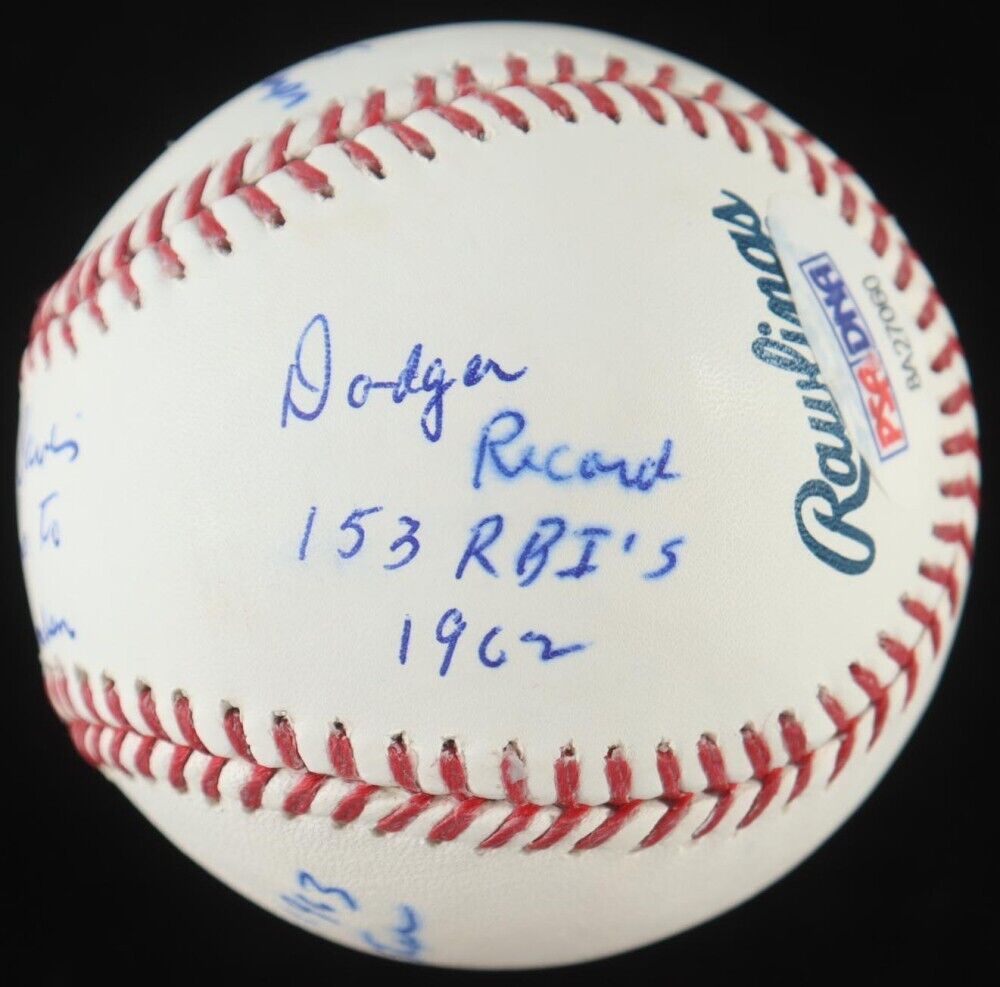 Dodger
Record
153 RBI's
1962
Rawlings
PSA DNA
BA27060
to